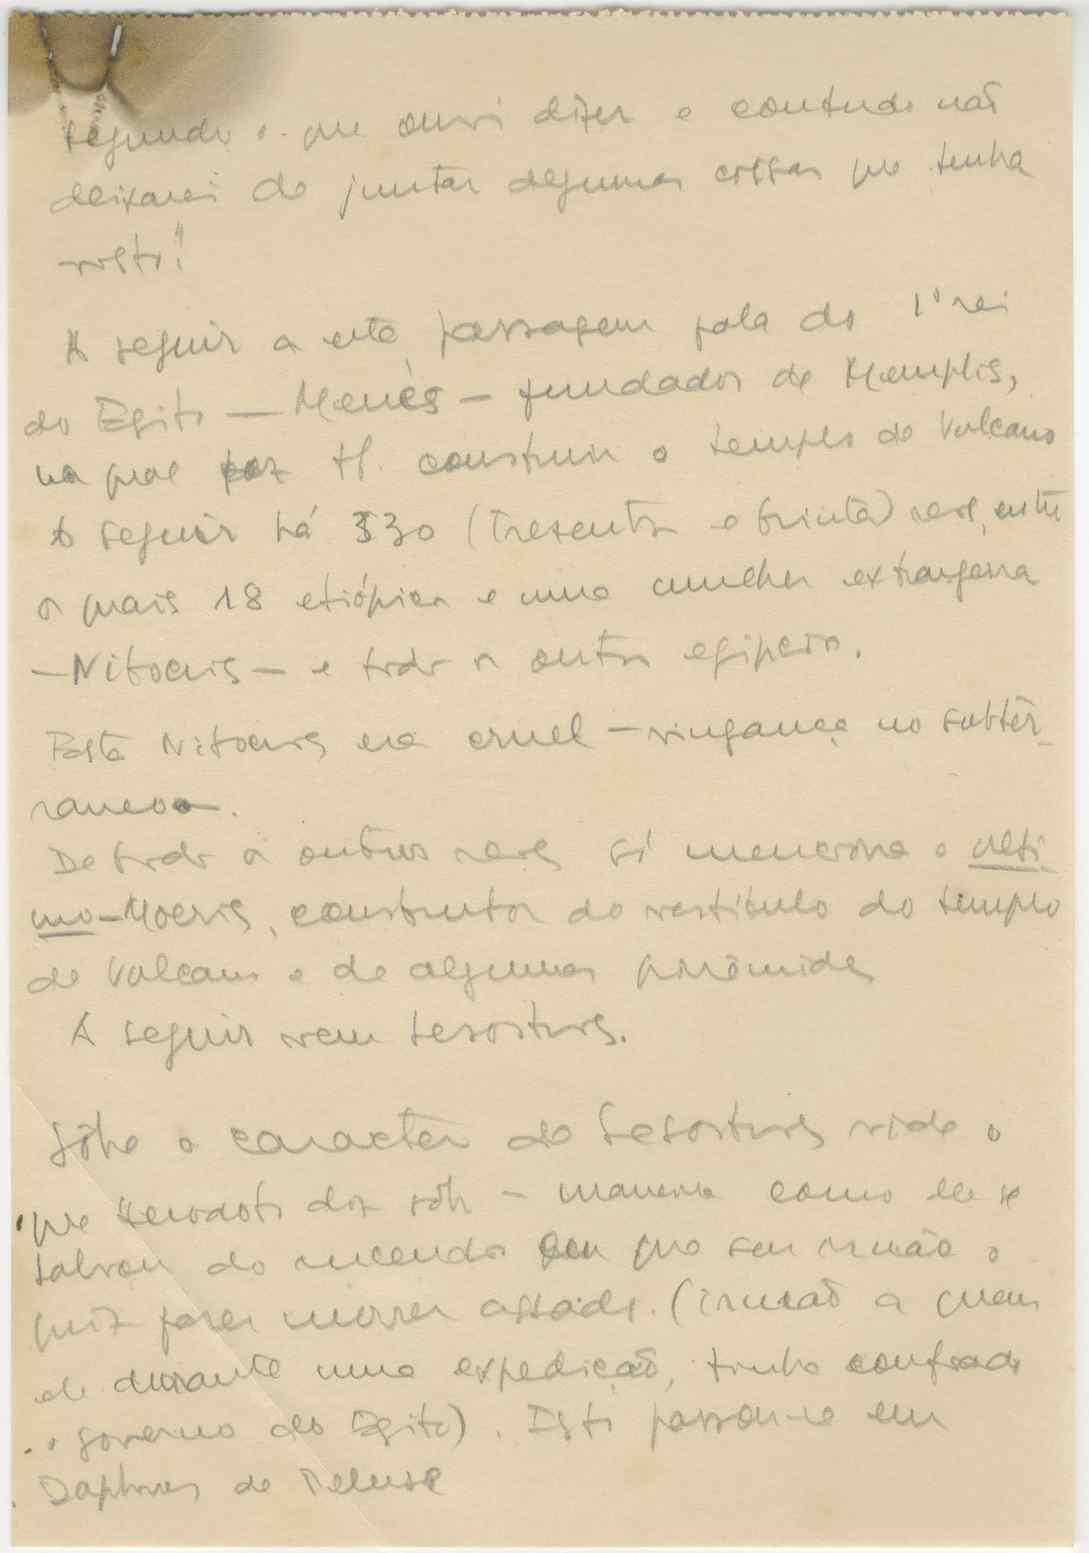 segundo o que ouvi dizer e contudo não
deixarei de juntar algumas coisas que tenha
visto."
A seguir a esta passagem fala do 1º rei
do Egito — Menés — fundador de Memphis,
na qual H. construiu o templo de Vulcano
A seguir há 330 (Trezentos e trinta) reis, entre
os quais 18 etiópies e uma mulher extrangeira
— Nitocris — e todos os outros egipcios.
Esta Nitocris era cruel — vingança no subter-
raneo.
De todos os outros reis só menciona o ulti-
mo — Moeris, construtor do vestibulo do templo
de Vulcano e de algumas pirâmides
A seguir vem Sesostris.
Sôbre o caracter de Sesostris vide o
que Herodoto diz sôbre — maneira como ele se
salvou do incendio em que seu irmão o
quiz fazer morrer assado. (irmão a quem
ele durante uma expedição, tinha confiado
o governo do Egito). Isto passou-se em
Daphnes de Peluse